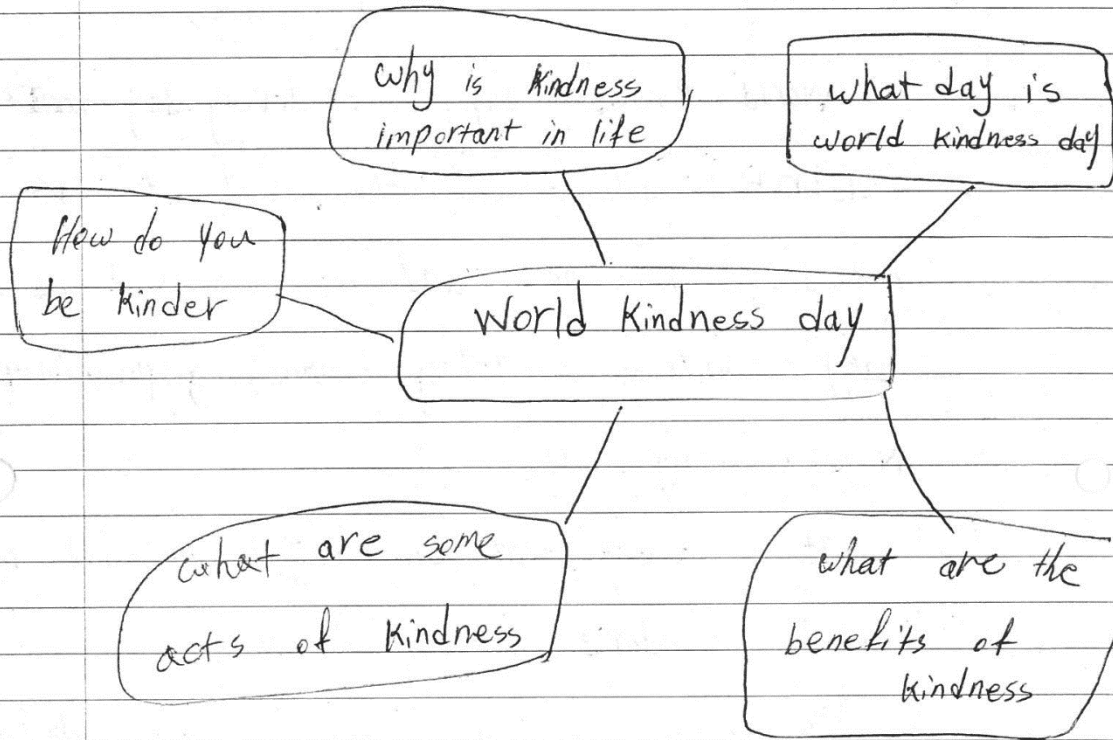 why is kindness
important in life
what day is
world kindness day
How do you
be kinder
World kindness day
what are some
acts of kindness
what are the
benefits of
kindness